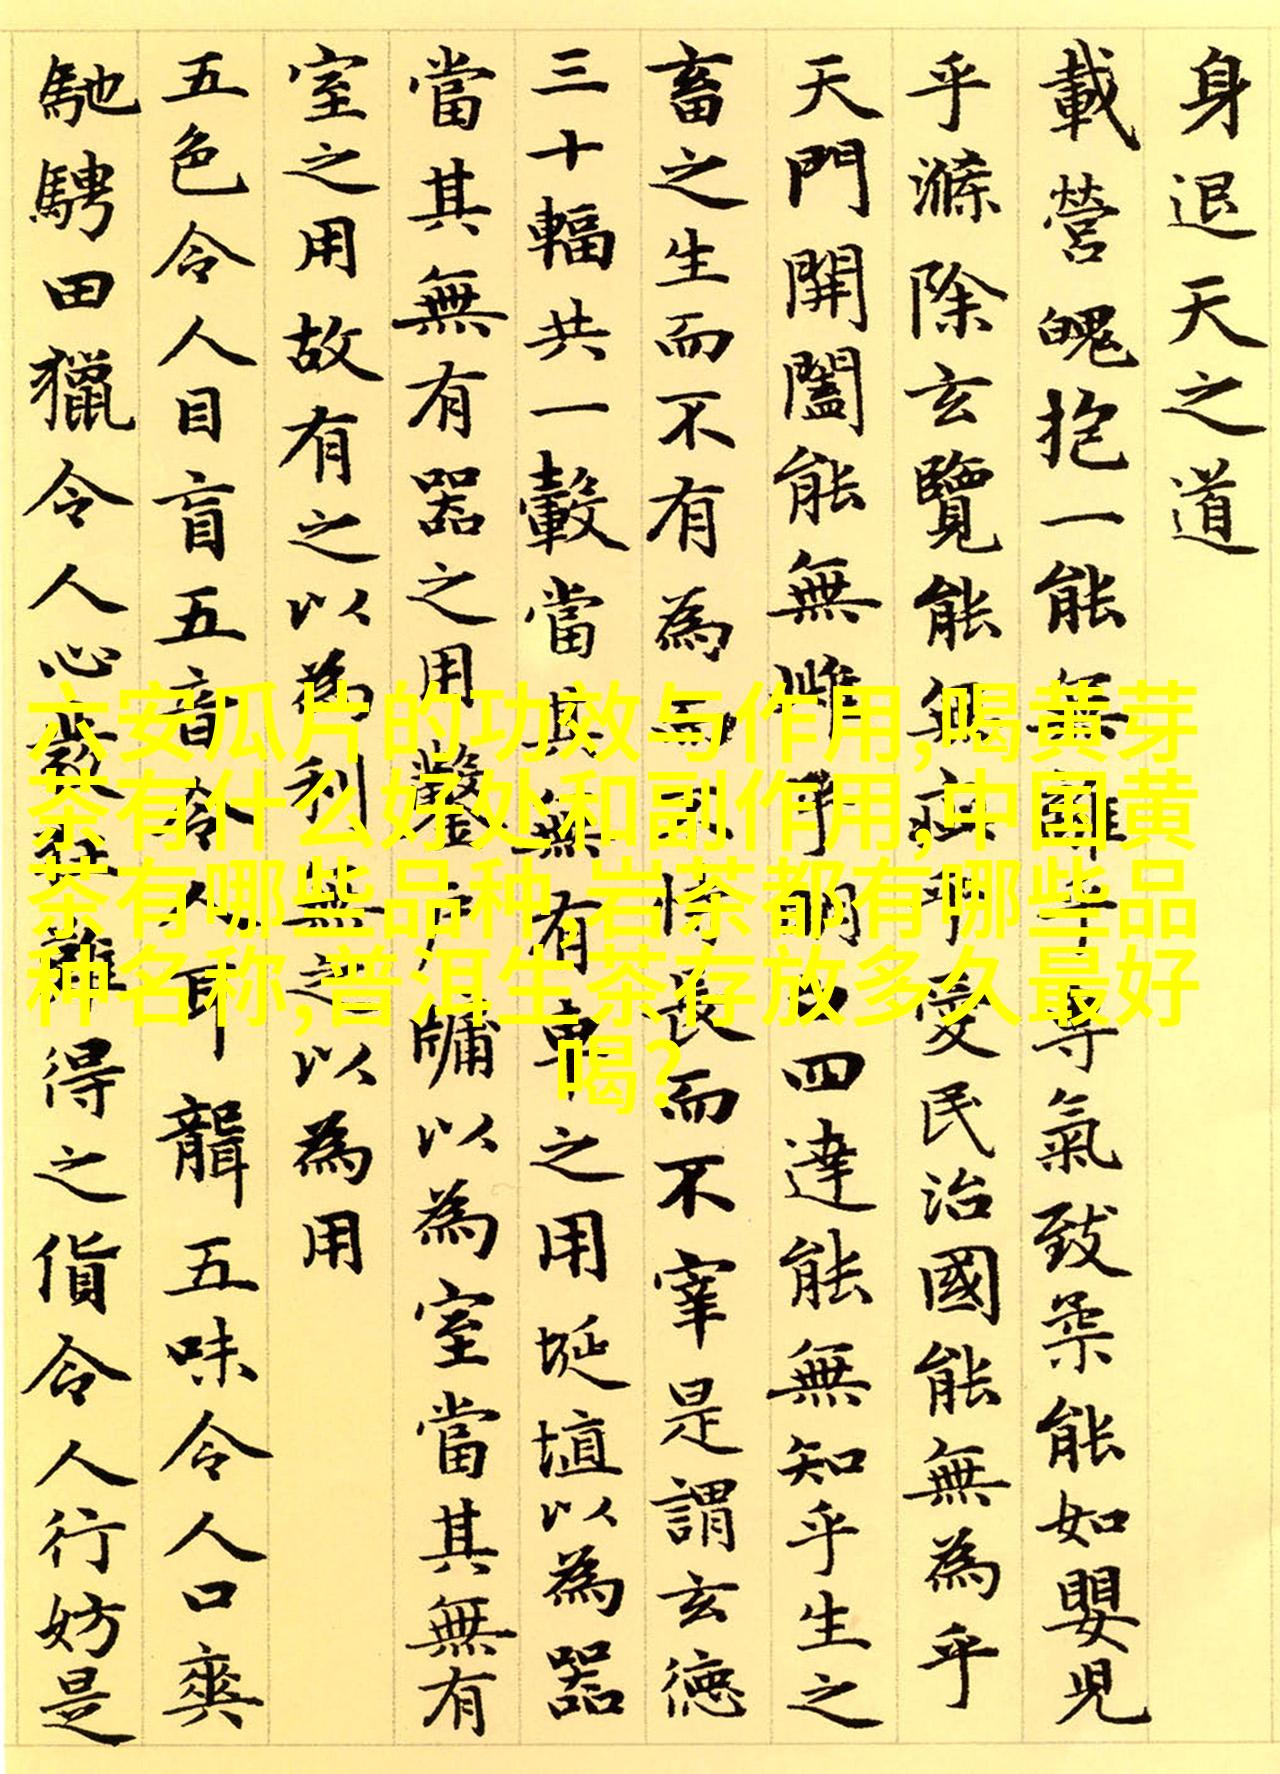 身退天之道
載營魄抱一能無離乎專氣致柔能如嬰兒
乎滌除玄覽能無疵乎愛民治國能無為乎
天門開闔能無雌乎明白四達能無知乎生之
畜之生而不有為而不恃長而不宰是謂玄德
三十輻共一轂當其無有車之用埏埴以為器
當其無有器之用鑿戶牖以為室當其無有
室之用故有之以為利無之以為用
五色令人目盲五音令人耳聾五味令人口爽
馳騁田獵令人心發狂難得之貨令人行妨是
六安瓜片的功效与作用,喝黄芽
茶有什么好处和副作用,中国黄
茶有哪些品种,岩茶都有哪些品
种名称,普洱生茶存放多久最好
喝?